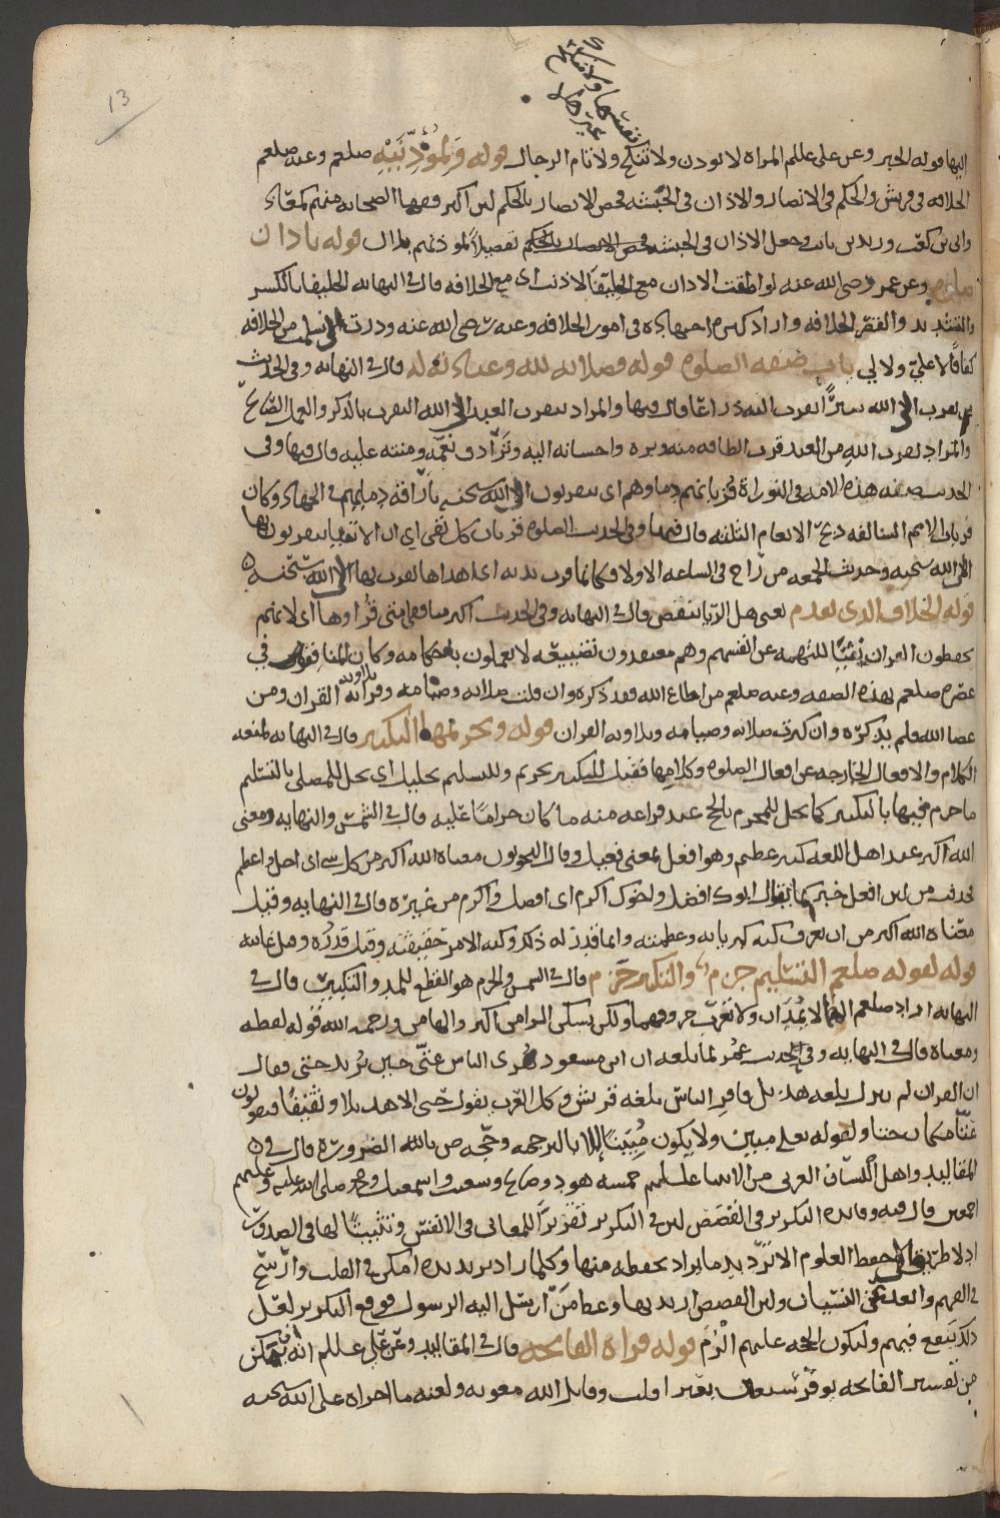 13
اليها قوله الخبر وعن علي عللم المراه لا تودن ولا تنكح ولا تام الرجال قوله ولمؤذِّنَيْهِ صلعم وعنه صلعم
الخلافه في قريش والحكم في الانصار والاذان في الحبشه فخص الانصار بالحكم لان اكثر فقها الصحابه منهم كمعاذ
وابي بن كعب وزيد بن ثابت وجعل الاذان في الحبشه تفضيلاً لموذنهم بلال قوله باذان
وعن عمر رضي الله عنه لو اطقت الاذان مع الخليفا لاذنت اي مع الخلافه قال في النهايه الخليفا بالكسر
والتشديد والقصر الخلافه واراد كثره اجتهاده في امور الخلافه وعنه رضي الله عنه وددت اني سلمت من الخلافه
كفافًا لا عليَّ ولا لي باب صفه الصلوه قوله فصلاته لله وعباده له قال في النهايه وفي الحديث
من تقرب الى الله شبرًا تقرب اليه ذراعًا قال فيها والمراد بتقرب العبد الى الله التقرب بالذكر والعمل الصالح
والمراد بقرب الله من العبد قرب الطافه منه وبره واحسانه اليه وترادف نعمه ومننه عليه قال فيها وفي
الحديث صفه هذه الامه في التوراة قربانهم دماوهم اي يتقربون الى الله سبحنه باراقه دمايهم في الجهاد وكان
قربان الامم السالفه ذبح الانعام الثلثه قال فيها وفي الحديث الصلوه قربان كل تقي اي ان الاتقيا يتقربون بها
الى الله سبحنه وحديث الجمعه من راح في الساعه الاولا فكانما قرب بدنه اي اهداها تقرب بها الى الله سبحنه
قوله الخلاف الذي تقدم يعني هل الريا ينقض قال في النهايه وفي الحديث اكثر منافقي امتي قراوها اي لانهم
يحفظون القران نفيًا للتهمه عن انفسهم وهم معتقدون تضييعه لا يعملون باحكامه وكان المنافقون في
عصره صلعم بهذه الصفه وعنه صلعم من اطاع الله فقد ذكره وان قلت صلاته وصيامه وتلاوته القران ومن
عصا الله فلم يذكره وان كثرت صلاته وصيامه وتلاوته القران قوله وتحريمها التكبير قال في النهايه لمنعه
الكلام والافعال الخارجه عن افعال الصلوه وكلامها فقيل للتكبير تحريم وللتسليم تحليل اي يحل للمصلي بالتسليم
ما حرم فيها بالتكبير كما يحل للمحرم بالحج عند فراغه منه ما كان حرامًا عليه قال في الشمس والنهايه ومعنى
الله اكبر عند اهل اللغه كبير عظيم وهو افعل بمعنى فعيل وقال النحويون معناه الله اكبر من كل شي اي اجل واعظم
فحذفت من لان افعل خبر كما يقال ابوك افضل واخوك اكرم اي افضل واكرم من غيره قال في النهايه وقيل
معناه الله اكبر من ان يعرف كنه كبريايه وعظمته وانما قدر له ذكر وكنه الامر حقيقته وقيل قدره وقيل غايته
قوله لقوله صلعم التسليم جزم والتكبير جزم قال في الشمس والجزم هو القطع للمد والتكبير قال في
النهايه اراد صلعم انهما لا يُمَدَّان ولا تعرب حروفهما ولكن تسكن الرا من اكبر والها من ورحمه الله قوله لفظه
ومعناه قال في النهايه وفي الحديث عمر لما بلغه ان ابن مسعود يُقرِي الناس عتّى حين يريد حتى فقال
ان القران لم ينزل بلغه هذيل فاقر الناس بلغه قريش وكل العرب يقول حتى الا هذيلا وثقيفًا فيقولون
عتّا مكان حتا ولقوله تعلى مبين ولا يكون مُبينًا الا بالترجمه وحجه ص بالله الضروره قال في
المقاليد واهل اللسان العربي من الانبيا عليهم خمسه هود وصالح وشعيب واسمعيل ومحمد صلى الله عليه وعليهم
اجمعين قال فيه وفايده التكرير في القصص لان في التكرير تقريرًا للمعاني في الانفس وتثبيتًا لها في الصدور
اذ لا طريق الى حفظ العلوم الا ترديد ما يراد حفظه منها وكلما زاد ترديده امكن في القلب وارسخ
في الفهم وابعد عن النسيان ولان القصص اريد بها وعظ من ارسل اليه الرسول فوقع التكرير لعل
ذلك ينفع فيهم وليكون الحجه عليهم الزم قوله قراة الفاتحه قال في المقاليد وعن علي عللم انه يمكن
من تفسير الفاتحه بوقر سبعين بعير اقلت وقاتل الله معويه ولعنه ما اجراه على الله سبحنه